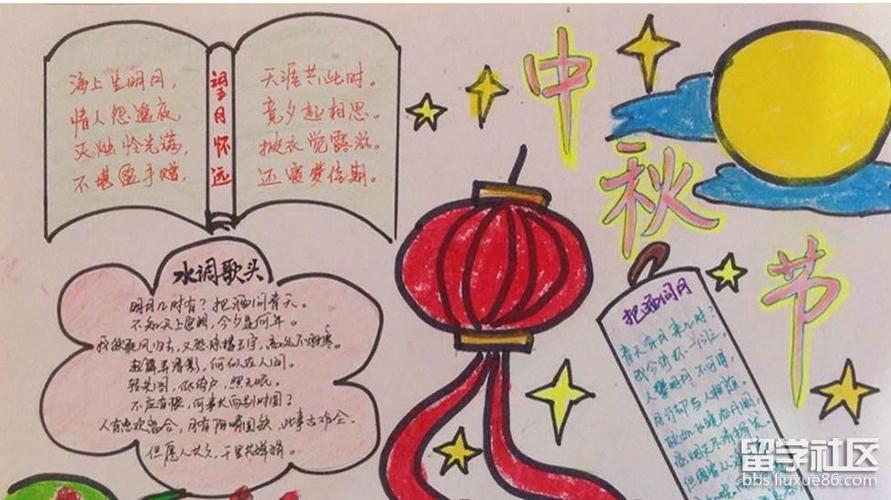 海上生明月，
情人怨遥夜，
灭烛怜光满，
不堪盈手赠，
望月怀远
天涯共此时。
竟夕起相思。
披衣觉露滋。
还寝梦佳期。
中秋节
水调歌头
明月几时有？把酒问青天。
不知天上宫阙，今夕是何年。
我欲乘风归去，又恐琼楼玉宇，高处不胜寒。
起舞弄清影，何似在人间。
转朱阁，低绮户，照无眠。
不应有恨，何事长向别时圆？
人有悲欢离合，月有阴晴圆缺，此事古难全。
但愿人长久，千里共婵娟。
把酒问月
青天有月来几时？
我今停杯一问之。
人攀明月不可得，
月行却与人相随。
皎如飞镜临丹阙，
但见宵从
留学社区
bbs.liuxue86.com